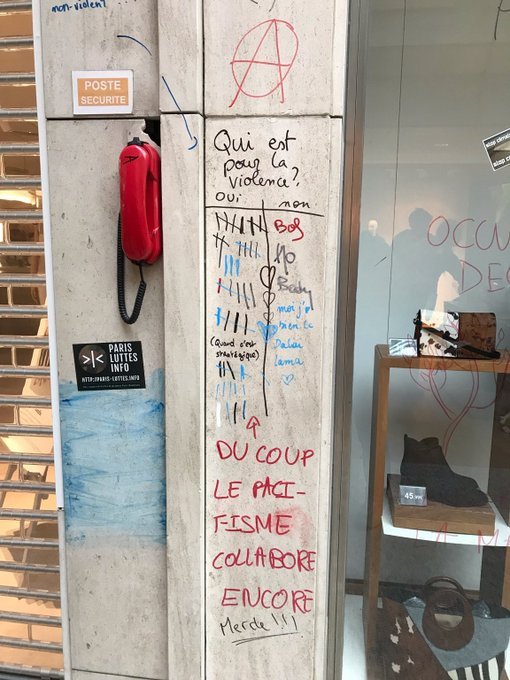 non-violent?
POSTE
SECURITE
A
Qui est
pour la
violence?
oui non
Bof
(Quand c'est
stratégique)
moi j'
bien le
Dalaï
lama
PARIS
LUTTES
INFO
HTTP://PARIS-LUTTES.INFO
DU COUP
LE PACI-
FISME
COLLABORE
ENCORE
Merde!!!
OCCU
DE
45